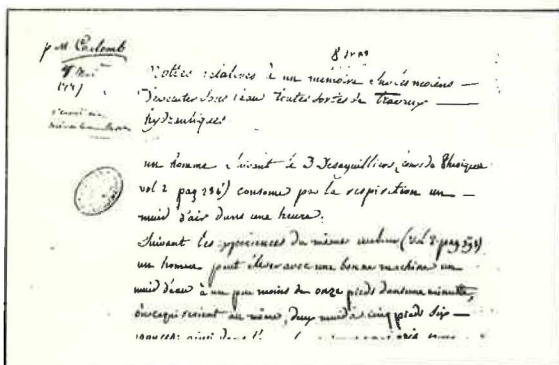 p M. Coulomb
8 Juin
Notices relatives à un mémoire sur les moiens —
D'executer sous l'eau toutes sortes de Travaux —
hydrauliques
un homme suivant le D Desaguilliers, cours de Phisique
vol 2 pag 236) consome par la respiration un —
muid d'air dans une heure.
Suivant les experiences du même auteur (vol 2 pag
un homme peut elever avec une bonne machine un
muid d'eau à un peu moins de onze pieds dans une minute,
ou ce qui revient au même, deux muid à cinq pieds six —
pouces; ainsi dans